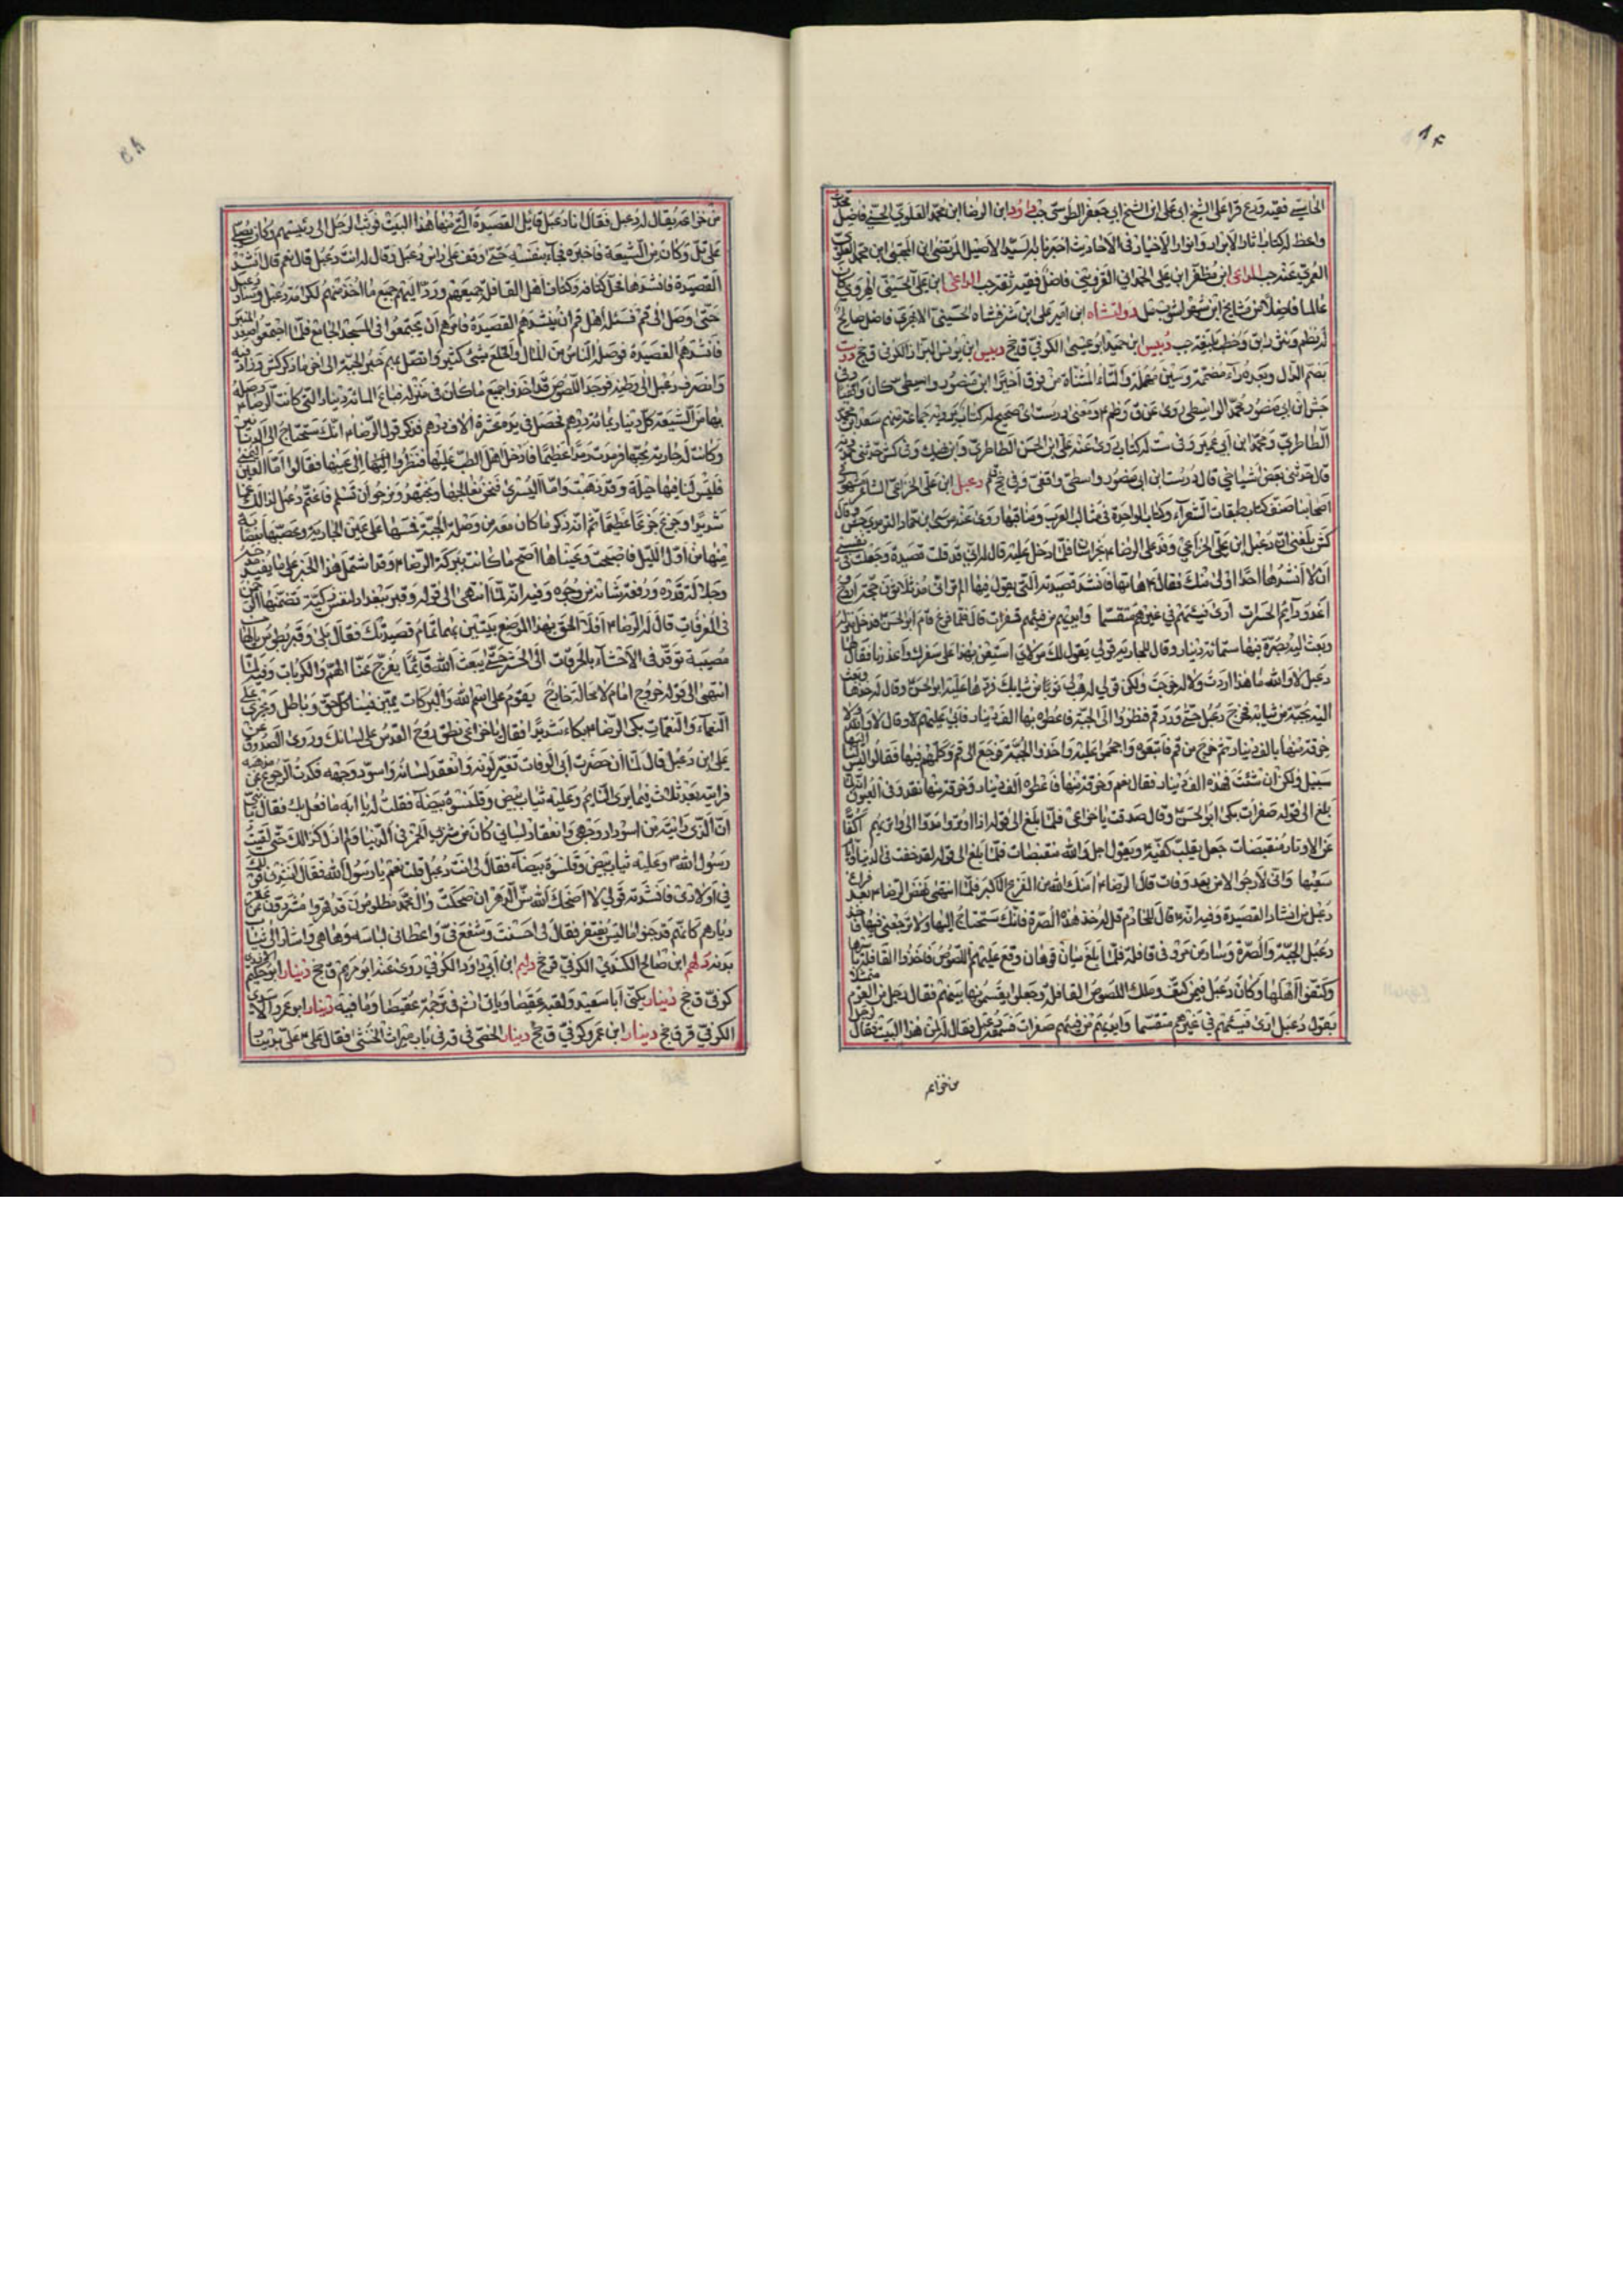 ۸۴
فقيه قرأ على الشيخ ابى على ابن الشيخ ابي جعفر الطوسى جب داود ابن الرضا ابن محمد العلوى فاضل
واعظ له كتاب اثار الابرار وانوار الاخيار فى الاحاديث اخبرنا به السيد الاصيل المرتضى ابن المجتبى ابن محمد العلوى
العمرى عنه جب الداعى ابن مظفر ابن على الحمدانى القزوينى فاضل فقيه ثقة جب الداعى ابن على الحسينى
عالما فاضلا من مشايخ ابن شهراشوب مل دولتشاه ابن امير على ابن شرفشاه الحسينى الابهرى فاضل صالح
له نظم ونثر رايق وخطب بليغة جب دبيس ابن حميد ابو عيسى الكوفى ق جخ دبيس ابن يونس البزاز الكوفى ق جخ
بضم الدال وبعده راء مضمومة وسين مهملة والتاء المثناة من فوق اخيرا ابن منصور واسطى كان
جش ابن ابى منصور محمد الواسطى روى عن ق وظم ومعنى درست اى صحيح له كتاب يرويه جماعة منهم سعد ابن محمد
الطاطرى ومحمد ابن ابى عمير وفى ست له كتاب روى عنه على ابن الحسن الطاطرى
قال حدثنى بعض اشياخى قال درست ابن ابى منصور واسطى واقفى وفى جخ ظم دعبل ابن على الخزاعى الشاعر مشهور فى
اصحابنا صنف كتاب طبقات الشعراء وكتاب الواحدة فى مثالب العرب ومناقبها روى عنه موسى ابن حماد
كش بلغنى ان دعبل ابن على الخزاعى وفد على الرضا ع بخراسان فلما دخل عليه قال له انى قد قلت قصيدة وجعلت فى نفسى
ان لا انشدها احدا اولى منك فقال ع هاتها فانشد قصيدته التى يقول فيها الم تر انى مذ ثلاثون حجة اروح
اغدو دائم الحسرات ارى فيئهم فى غيرهم متقسما وايديهم من فيئهم صفرات قال فلما فرغ قام ابو الحسن ع فدخل منزله
وبعث اليه بصرة فيها ستمائة دينار وقال للجارية قولى له يقول لك مولاى استعن بهذا على سفرك واعذرنا فقال لها
دعبل لا والله ما هذا اردت ولا له خرجت ولكن قولى له هب لى ثوبا من ثيابك فردها عليه ابو الحسن ع وقال له خذها وبعث
اليه بجبة من ثيابه فخرج دعبل حتى ورد قم فنظروا الى الجبة فاعطوه بها الف دينار فابى عليهم وقال لا والله ولا
خرقة منها بالف دينار ثم خرج من قم فاتبعوه واجمعوا عليه واخذوا الجبة فرجع الى قم وكلمهم فيها فقالوا ليس اليها
سبيل ولكن ان شئت فهذه الف دينار فقال نعم وخرقة منها فاعطوه الف دينار وخرقة منها
بلغ الى قوله صفرات بكى ابو الحسن ع وقال صدقت يا خزاعى فلما بلغ الى قوله اذا اوتروا مدوا الى واتريهم اكفا
عن الاوتار منقبضات جعل يقلب كفيه ويقول اجل والله منقبضات فلما بلغ الى قوله لقد خفت فى الدنيا وايام
سعيها وانى لارجو الامن بعد وفات قال الرضا ع امنك الله من الفزع الاكبر فلما انتهى نهض الرضا ع بعد فراغ
دعبل من انشاد القصيدة وفيه انه قال للخادم قل له خذ هذه الصرة فانك ستحتاج اليها ولا ترجعنى فيها فاخذ
دعبل الجبة والصرة وسار من مرو فى قافلة فلما بلغ ميان قوهان وقع عليهم اللصوص فاخذوا القافلة باسرها
وكتفوا اهلها وكان دعبل فيمن كتف وملك اللصوص القافلة وجعلوا يقسمونها بينهم فقال رجل من القوم متمثلا
بقول دعبل ارى فيئهم فى غيرهم متقسما وايديهم من فيئهم صفرات فسمعه دعبل فقال له لمن هذا البيت فقال لرجل
من خزاعه
من خزاعة يقال له دعبل فقال انا دعبل قايل القصيدة التى منها هذا البيت فوثب الرجل الى رئيسهم وكان يصلى
على تل وكان من الشيعة فاخبره فجاء بنفسه حتى وقف على راس دعبل وقال له انت دعبل قال نعم قال انشد
القصيدة فانشدها فحل كتافه وكتاف اهل القافلة جميعهم ورد اليهم جميع ما اخذ منهم لكرامة دعبل وسار دعبل
حتى وصل الى قم فسئله اهل قم ان ينشدهم القصيدة فامرهم ان يجتمعوا فى المسجد الجامع فلما اجتمعوا صعد المنبر
فانشدهم القصيدة فوصله الناس من المال والخلع بشئ كثير واتصل بهم خبر الجبة الى اخر ما ذكر كش وزاد فيه
وانصرف دعبل الى وطنه فوجد اللصوص قد اخذوا جميع ما كان فى منزله فباع المائة دينار التى كانت الرضا ع وصله
بها من الشيعة كل دينار بمائة درهم فحصل فى يده عشرة الاف درهم فذكر قول الرضا ع انك ستحتاج الى الدنانير
وكانت له جارية يحبها فرمدت رمدا عظيما فادخل اهل الطب عليها فنظروا اليها الى عينها فقالوا اما العين اليمنى
فليس لنا فيها حيلة وقد ذهبت واما اليسرى فنحن نعالجها ونجتهد ونرجو ان تسلم فاغتم دعبل لذلك غما
شديدا وجزع جزعا عظيما ثم انه ذكر ما كان معه من وصلة الجبة فمسها على عين الجارية وعصبها بعصابة
منها من اول الليل فاصبحت وعيناها اصح ما كانت ببركة الرضا ع وقد اشتمل هذا الخبر على ما يفيد
وجلالة قدره ورفعة شانه من وجوه وفيه انه لما انتهى الى قوله وقبر ببغداد لنفس زكية تضمنها الرحمن
فى الغرفات قال له الرضا ع افلا الحق بهذا الموضع بيتين بهما تمام قصيدتك فقال بلى وقبر بطوس يا لها
مصيبة توقد فى الاحشاء بالحرقات الى الحشر حتى يبعث الله قائما يفرج عنا الهم والكربات وفيه لما
انتهى الى قوله خروج امام لا محالة خارج يقوم على اسم الله والبركات يميز فينا كل حق وباطل ويجزى على
النعماء والنقمات بكى الرضا ع بكاء شديدا فقال يا خزاعى نطق روح القدس على لسانك وروى الصدوق عن
على ابن دعبل قال لما ان حضرت ابى الوفات تغير لونه وانعقد لسانه واسود وجهه فكدت الرجوع عن مذهبه
فرايته بعد ثلاث فيما يرى النايم وعليه ثياب بيض وقلنسوة بيضاء فقلت له يا ابه ما فعل بك فقال يا بنى
ان الذى رايته من اسوداد وجهى وانعقاد لسانى كان من شرب الخمر فى الدنيا ولم ازل كذلك حتى لقيت
رسول الله ص وعليه ثياب بيض وقلنسوة بيضاء فقال لى انت دعبل قلت نعم يا رسول الله فقال انشدنى قولك
فى اولادى فانشدته قولى لا اضحك الله سن الدهر ان ضحكت وال محمد مظلومون قد قهروا مشردون عن عقر
ديارهم كانهم قد جنوا ما ليس يغتفر فقال لى احسنت وشفع فى واعطانى لباسه وها هى واشار الى ثياب
بدنه دلهم ابن صالح الكندى الكوفى ق جخ دلهم ابن ابى داود الكوفى روى عنه ابو مريم ق جخ دينار ابو حكيم
كوفى ق جخ دينار يكنى ابا سعيد ولقبه عقيصا وياتى انش فى ترجمة عقيصا وما فيه دينار ابو عمرو الاسدى
الكوفى قر ق جخ دينار ابن عمرو كوفى ق جخ دينار الخصى فى قد فى باب ميراث الخنثى فقال على ع على بدينار